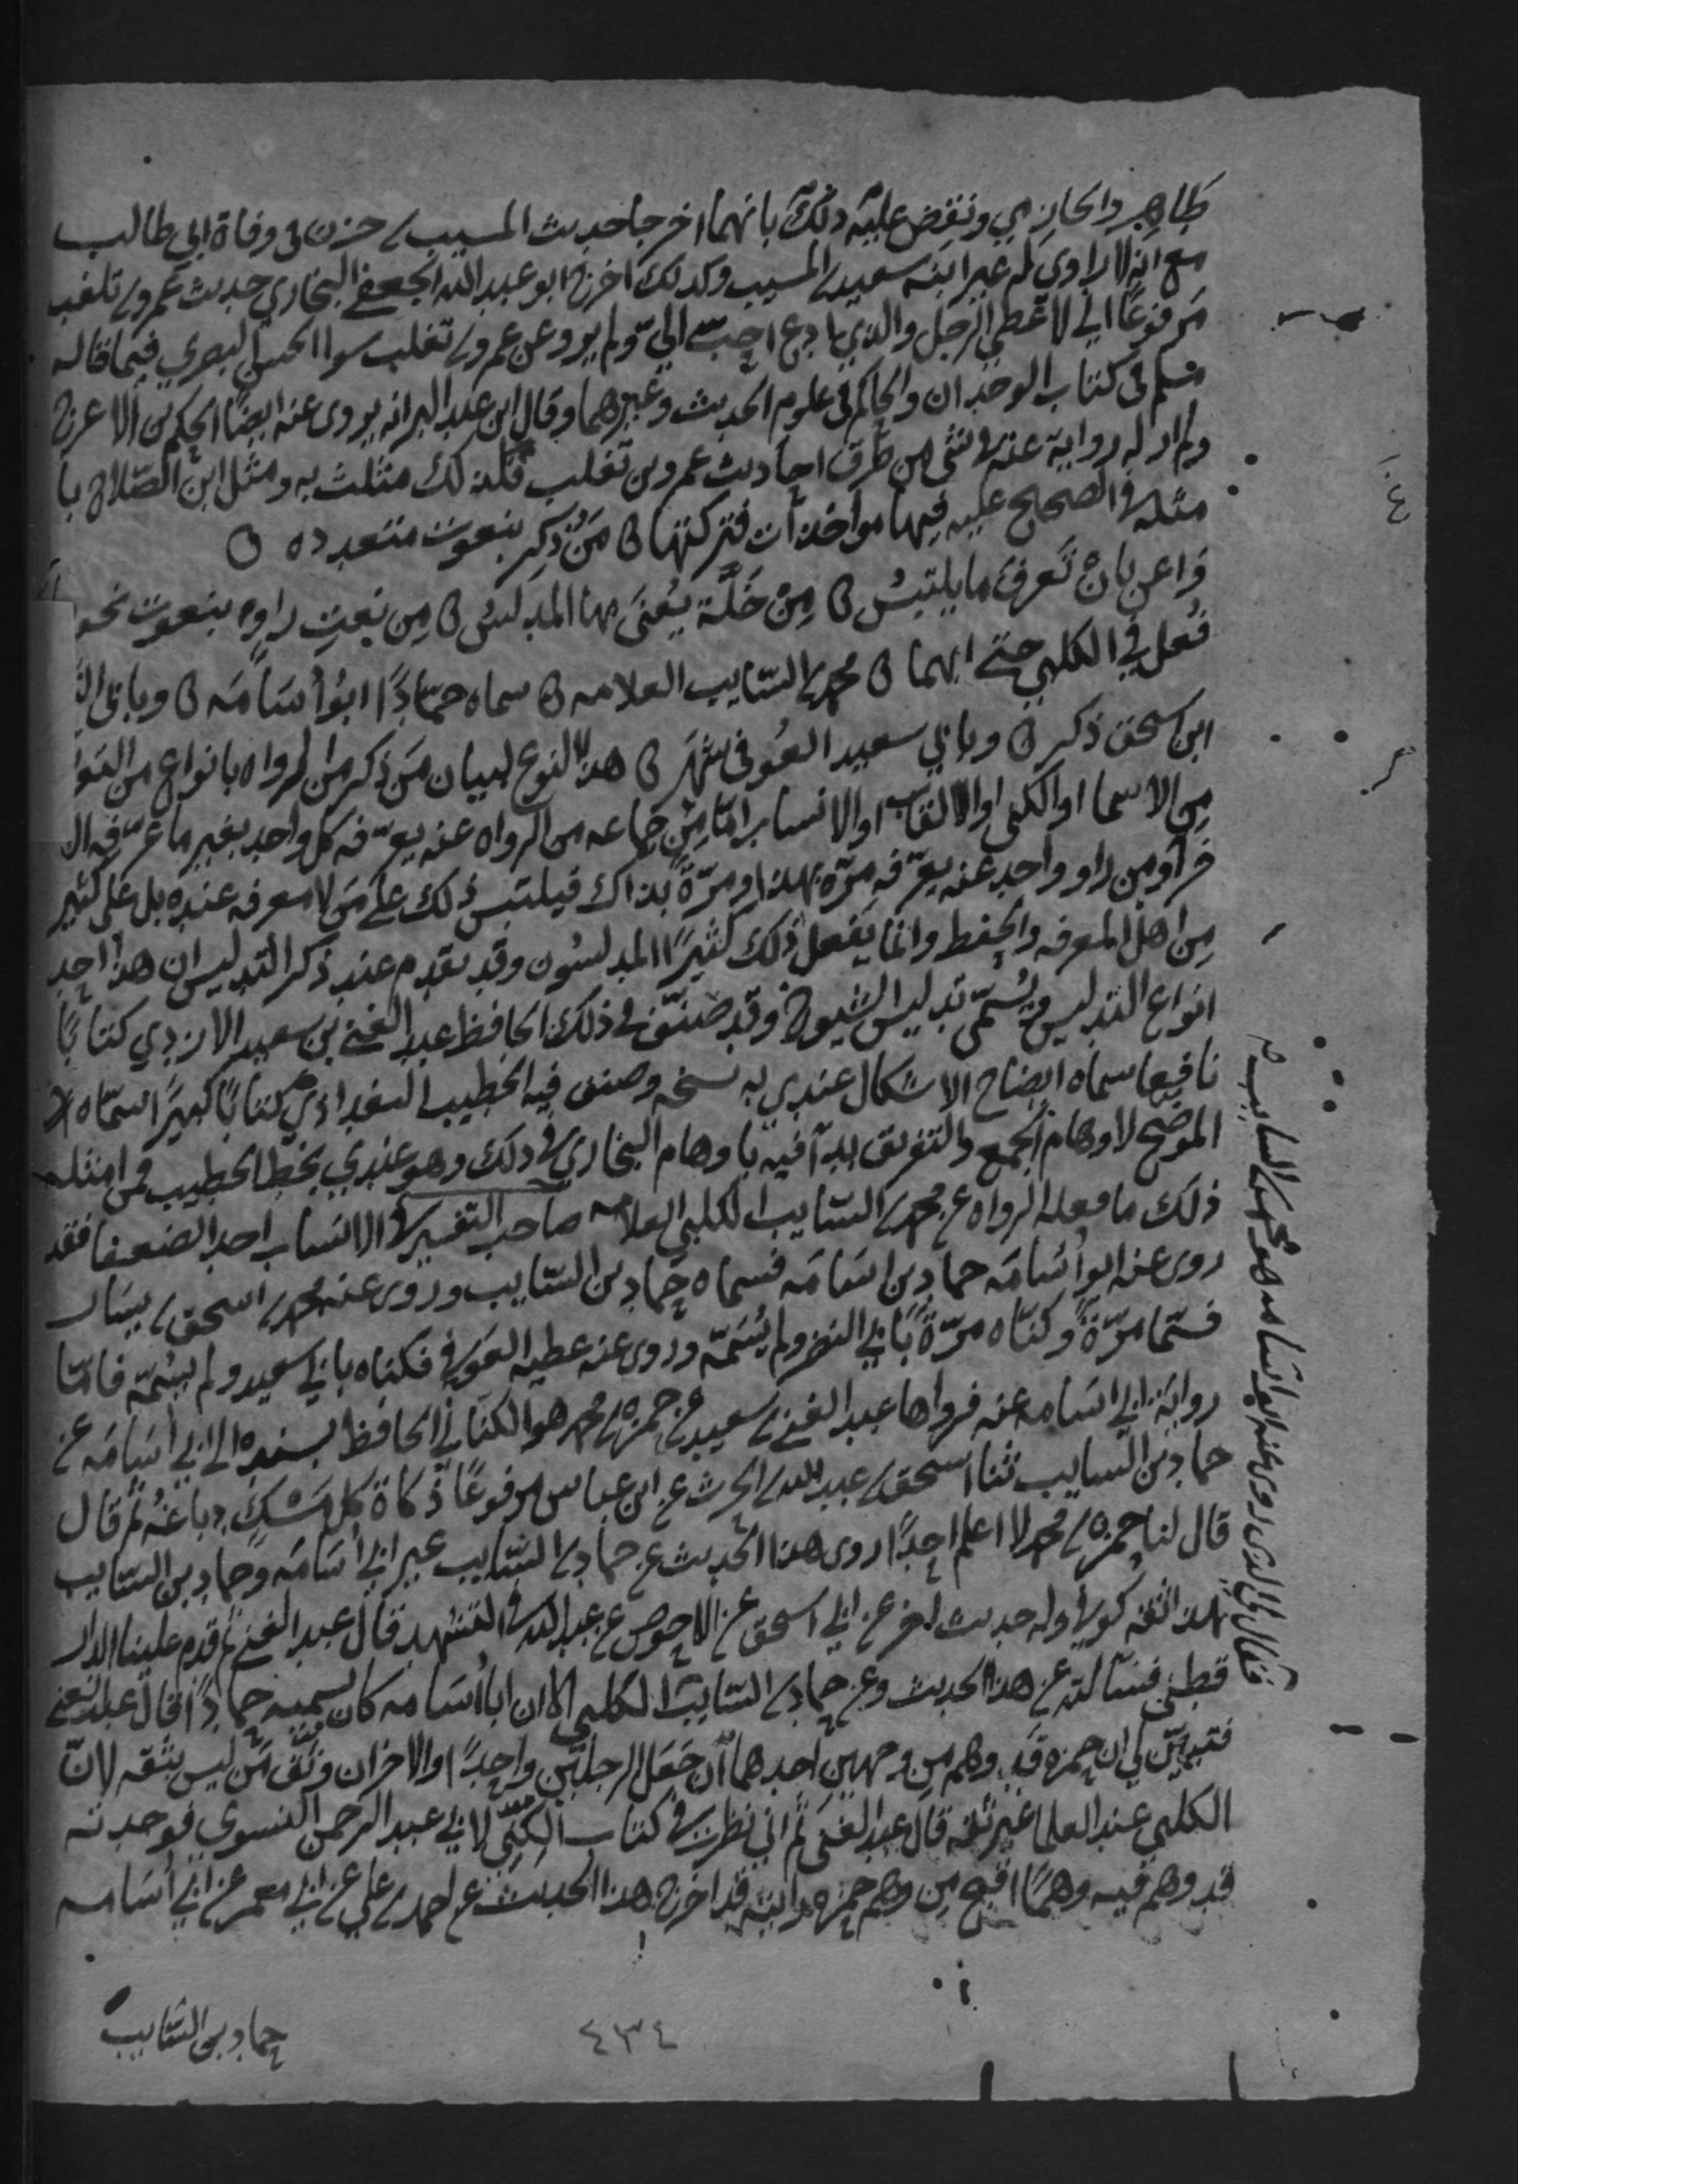 طاهر والحازمي ونقض عليه ذلك بانهما اخرجا حديث المسيب بن حزن في وفاة ابي طالب
مع انه لا راوي له غير ابنه سعيد بن المسيب وكذلك اخرج ابو عبد الله الجعفي البخاري حديث عمرو بن تغلب
مرفوعًا اني لاعطي الرجل والذي ادع احبّ اليّ ولم يرو عن عمرو بن تغلب سوا الحسن البصري فيما قاله
مسلم في كتاب الوحدان والحاكم في علوم الحديث وغيرهما وقال ابن عبد البر انه يروى عنه ايضًا الحكم بن الاعرج
ولم ار له رواية عنه في شي من طرق احاديث عمرو بن تغلب فلذلك مثلث به ومثل ابن الصلاح با
مثله في الصحيح عليه فيها مواخذات فتركتها ن مَن ذُكِر بنعوت متعدده ن
واعن بان تعرف ما يلتبسُ ن مِنْ خَلَّة يُعنَى بها المدلسُ ن مِن نعتِ راوٍ بنعوت نحو
فُعل في الكلبي حتى ابهما ن محمد بن السايب العلامه ن سماه حمّادًا ابو أسَامَه ن وبابي الن
ابن اسحق ذكر ن وبابي سعيد العوفي شهر ن هذا النوع لبيان مَن ذكر من الرواه بانواع من التعر
مِن الاسما او الكنى او الالقاب او الانساب امّا مِن جماعه من الرواه عنه يعرّفه كل واحد بغير ما عرّفه الا
خر او من راو واحد عنه يعرّفه مرّه بهذا ومرّةً بذاك فيلتبس ذلك على مَن لا معرفه عنده بل على كثير
مِن اهل المعرفه والحفظ وانما يفعل ذلك كثيرًا المدلسُون وقد تقدم عند ذكر التدليس ان هذا احد
انواع التدليس ويُسمّى تدليس الشيوخ وقد صنّف في ذلك الحافظ عبد الغني بن سعيد الازدي كتابًا
نافعا سماه ايضاح الاشكال عندي به نسخه وصنف فيه الخطيب البغدادي كتابًا كبيرًا سمّاه
الموضح لاوهام الجمع والتفريق بدا فيه باوهام البخاري في ذلك وهو عندي بخط الخطيب فمن امثله
ذلك ما فعله الرواه عن محمد بن السّايب الكلبي العلامه صاحب التفسير في الانساب احد الضعفا فقد
روى عنه ابو أسَامَه حماد بن اسَامَه فسماه حماد بن السّايب وروى عنه محمد بن اسحق بن يسار
فسمّا مرّةً وكنّاه مرّةً بابي النضر ولم يُسَمّه وروى عنه عطيه العَوفي فكناه بابي سعيد ولم يُسمّه فامّا
رواية ابي اسَامه عنه فرواها عبد الغني بن سعيد عن حمزه بن محمد هو الكنّاني الحافظ بسنده الى ابي اسَامَه عن
حماد بن السّايب ثنا اسحق بن عبد الله بن الحرث عن ابن عباس مرفوعًا ذكاة كل مَسْكٍ دباغُهُ ثم قال
قال لنا حمزه بن محمد لا اعلم احدًا روى هذا الحديث عن حماد بن السّايب غير ابي أسَامَه وحماد بن السّايب
هذا ثقه كوفي وله حديث اخر عن ابي اسحق عن الاحوص عن عبد الله في التشهد قال عبد الغني ثم قدم علينا الدار
قطني فسَالته عن هذا الحديث وعن حماد بن السّايب
الكلبي الا ان ابا اسَامه كان يسميه حمادًا قال عبد الغني
فتبيّن لي ان حمزه قد وهم مِن وجهين احدهما أن جَعَل الرجلَين واحدًا والاخر ان وثّق مَن ليس بثقه لانّ
الكلبي عند العلما غير ثقه قال عبد الغني ثم اني نظرت في كتاب الكُنَى لابي عبد الرحمن النسوي فوجدته
قد وهم فيه وهمًا اقبح مِن وهم حمزه رايته قد اخرج هذا الحديث عن احمد بن علي عن ابي معمر عن ابي أسَامه
حماد بن السّايب
٤٣٤
فقال لي الذي روى عنه ابو اسَامه هو محمد بن السايب
١٠٤